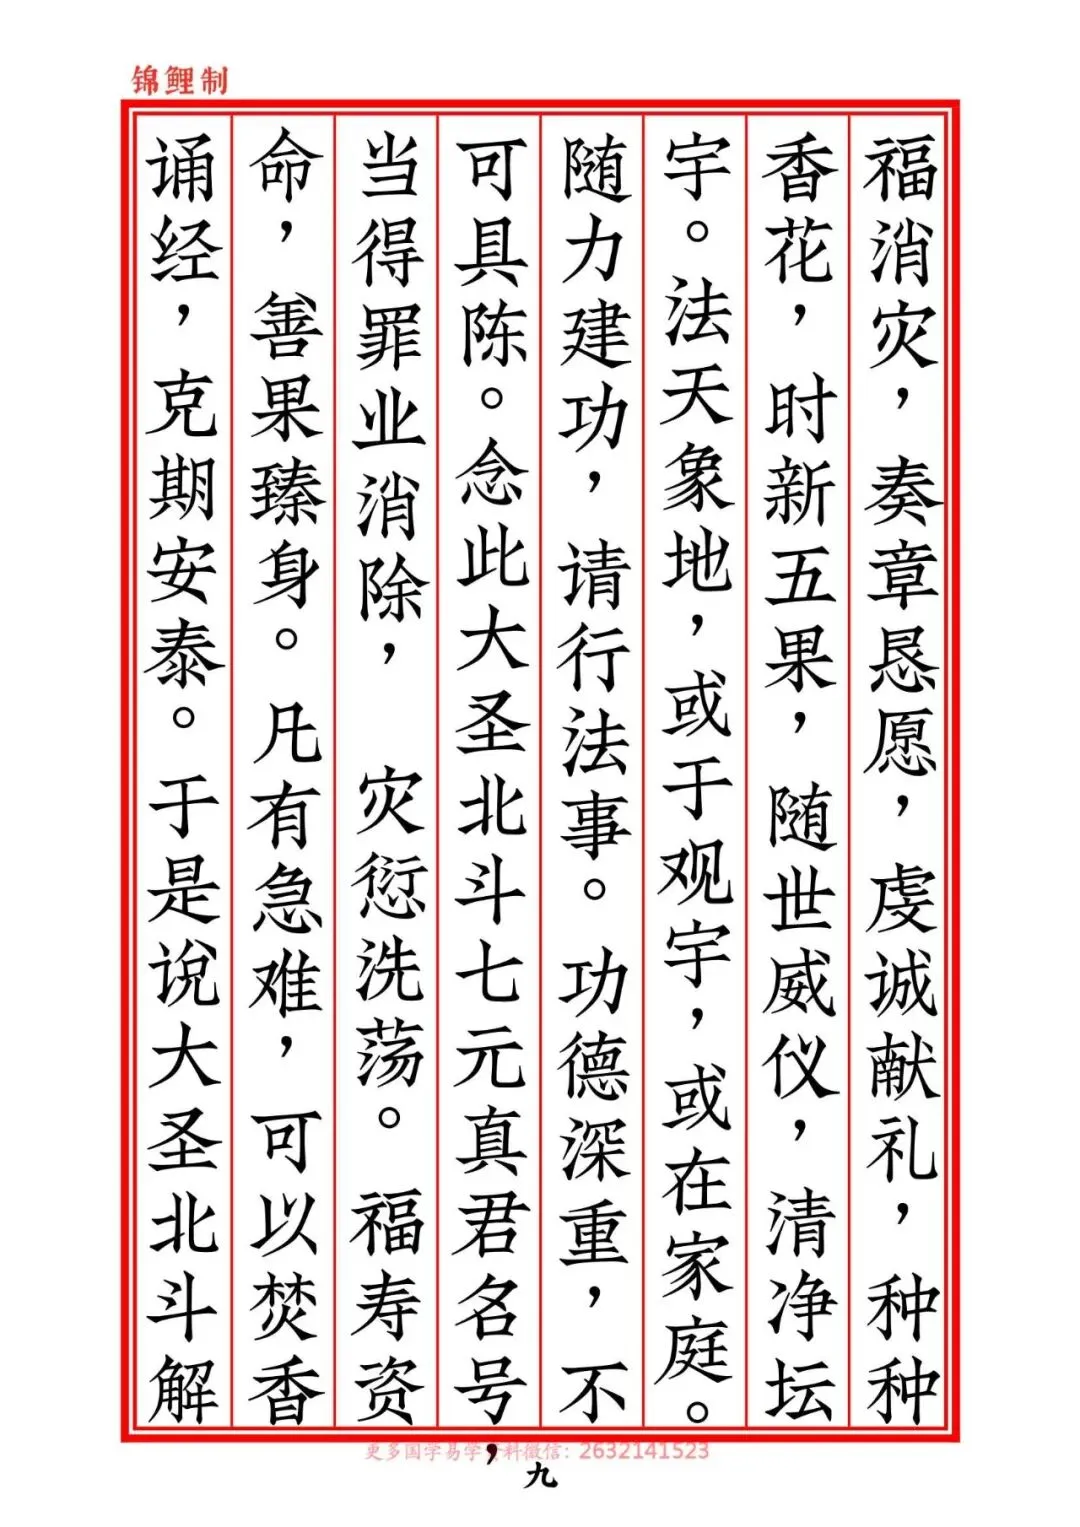 锦鲤制
福消灾，奏章恳愿，虔诚献礼，种种
香花，时新五果，随世威仪，清净坛
宇。法天象地，或于观宇，或在家庭。
随力建功，请行法事。功德深重，不
可具陈。念此大圣北斗七元真君名号，
当得罪业消除，灾愆洗荡。福寿资
命，善果臻身。凡有急难，可以焚香
诵经，克期安泰。于是说大圣北斗解
更多国学易学资料微信：2632141523
九